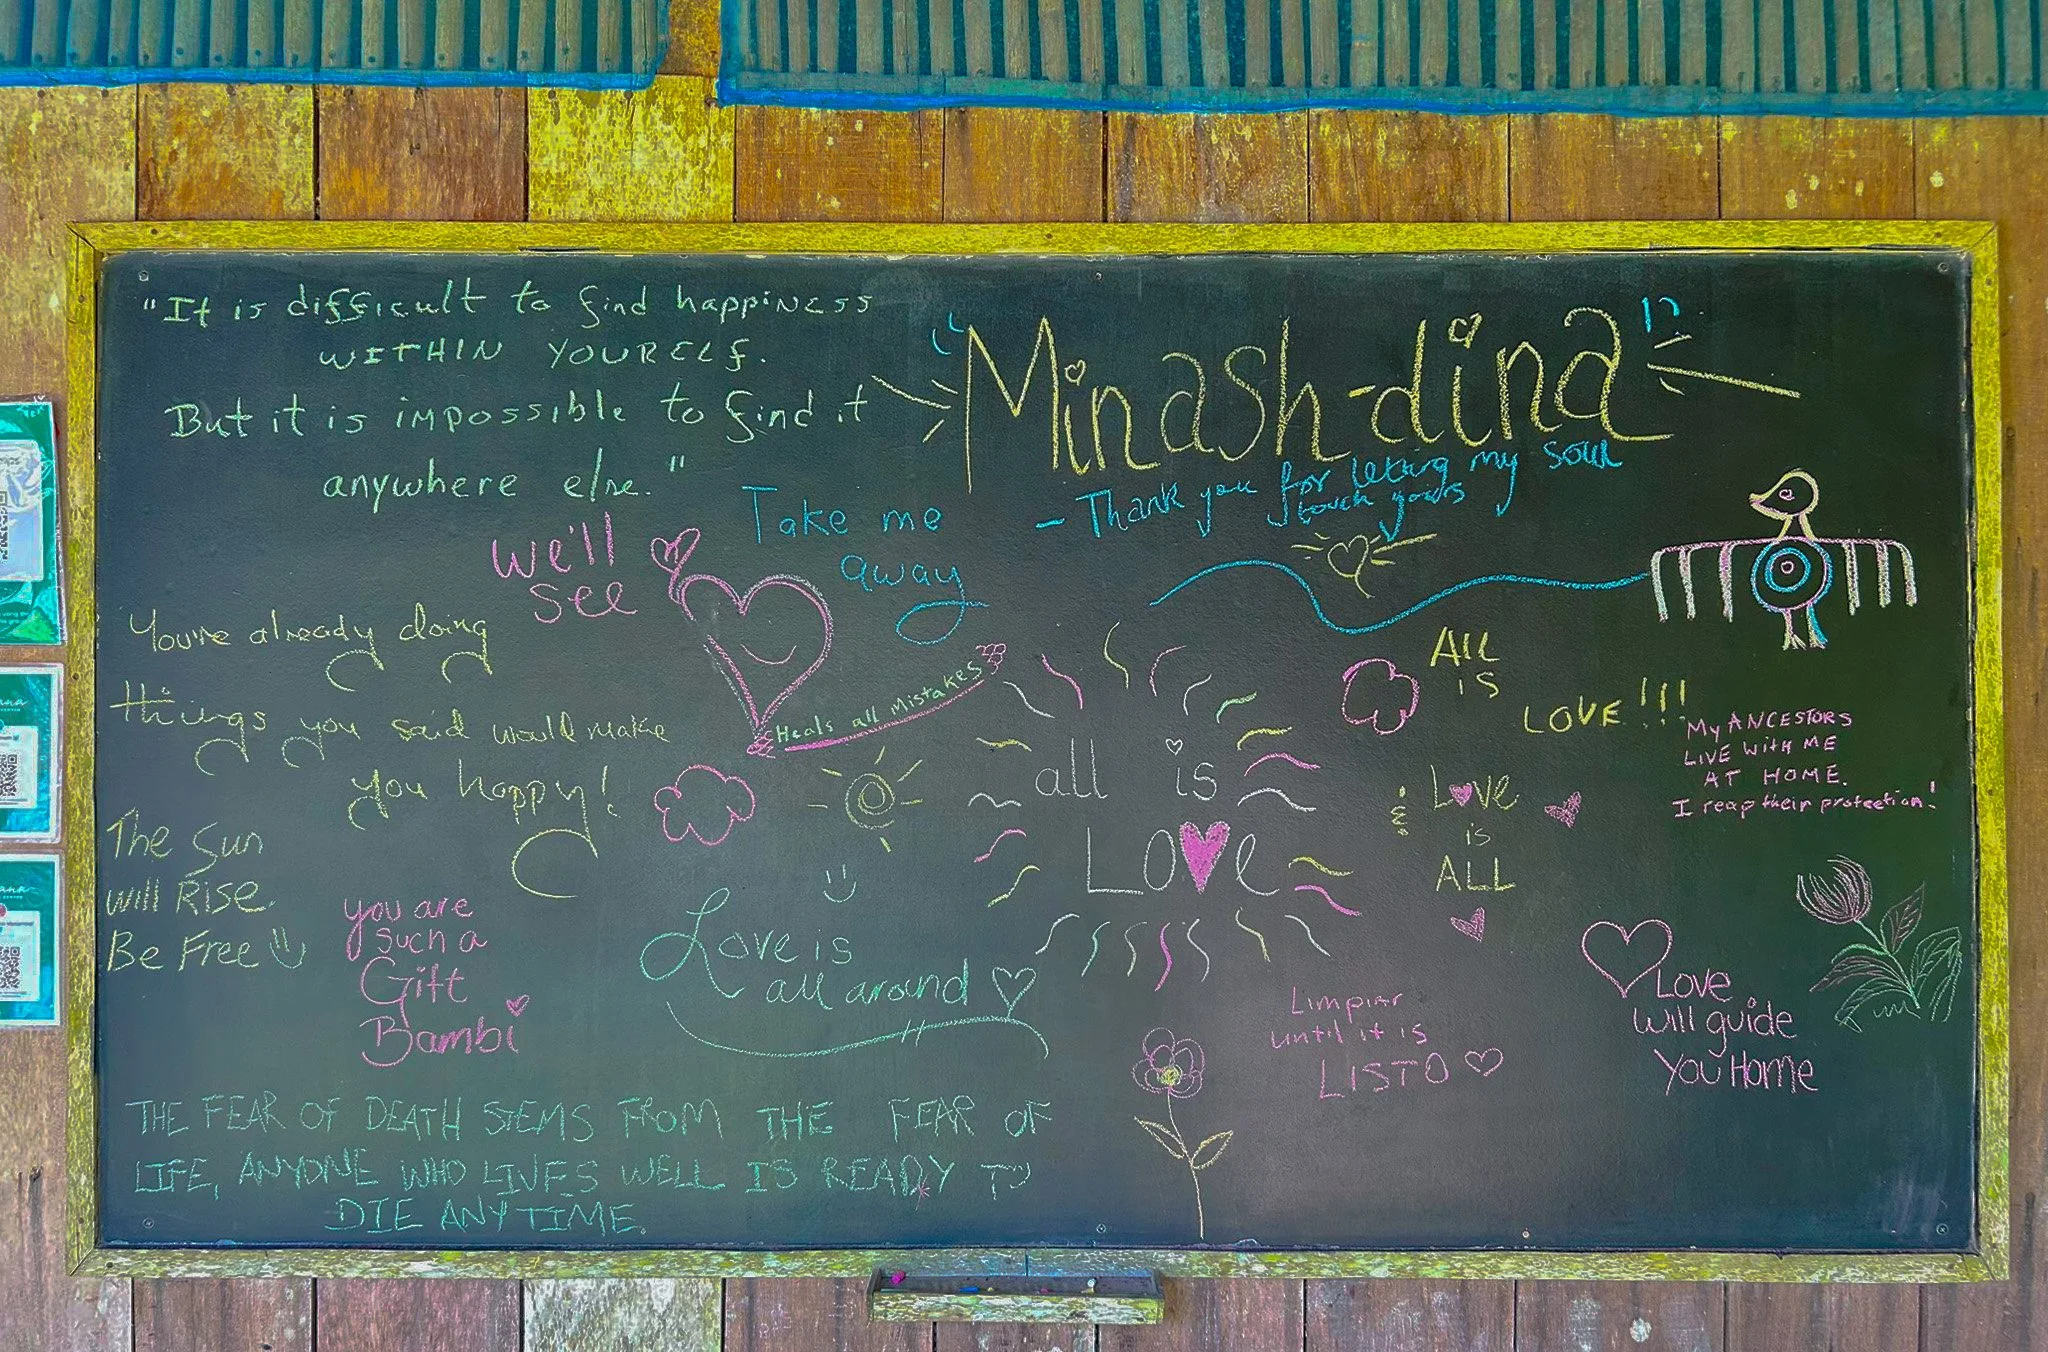 "It is difficult to find happiness
WITHIN YOURELF.
But it is impossible to find it
anywhere else."
"Minash-dina"
- Thank you for letting my soul
touch yours
Take me
away
we'll
see
Heals all Mistakes
You're already doing
things you said would make
you happy!
The Sun
will Rise
Be Free
you are
such a
Gift
Bambi
Love is
all around
all is
Love
All
is
LOVE!!!
& Love
is
ALL
My ANCESTORS
LIVE WITH ME
AT HOME.
I reap their protection!
Limpiar
until it is
LISTO
Love
will guide
You Home
THE FEAR OF DEATH STEMS FROM THE FEAR OF
LIFE, ANYONE WHO LIVES WELL IS READY TO
DIE ANYTIME.